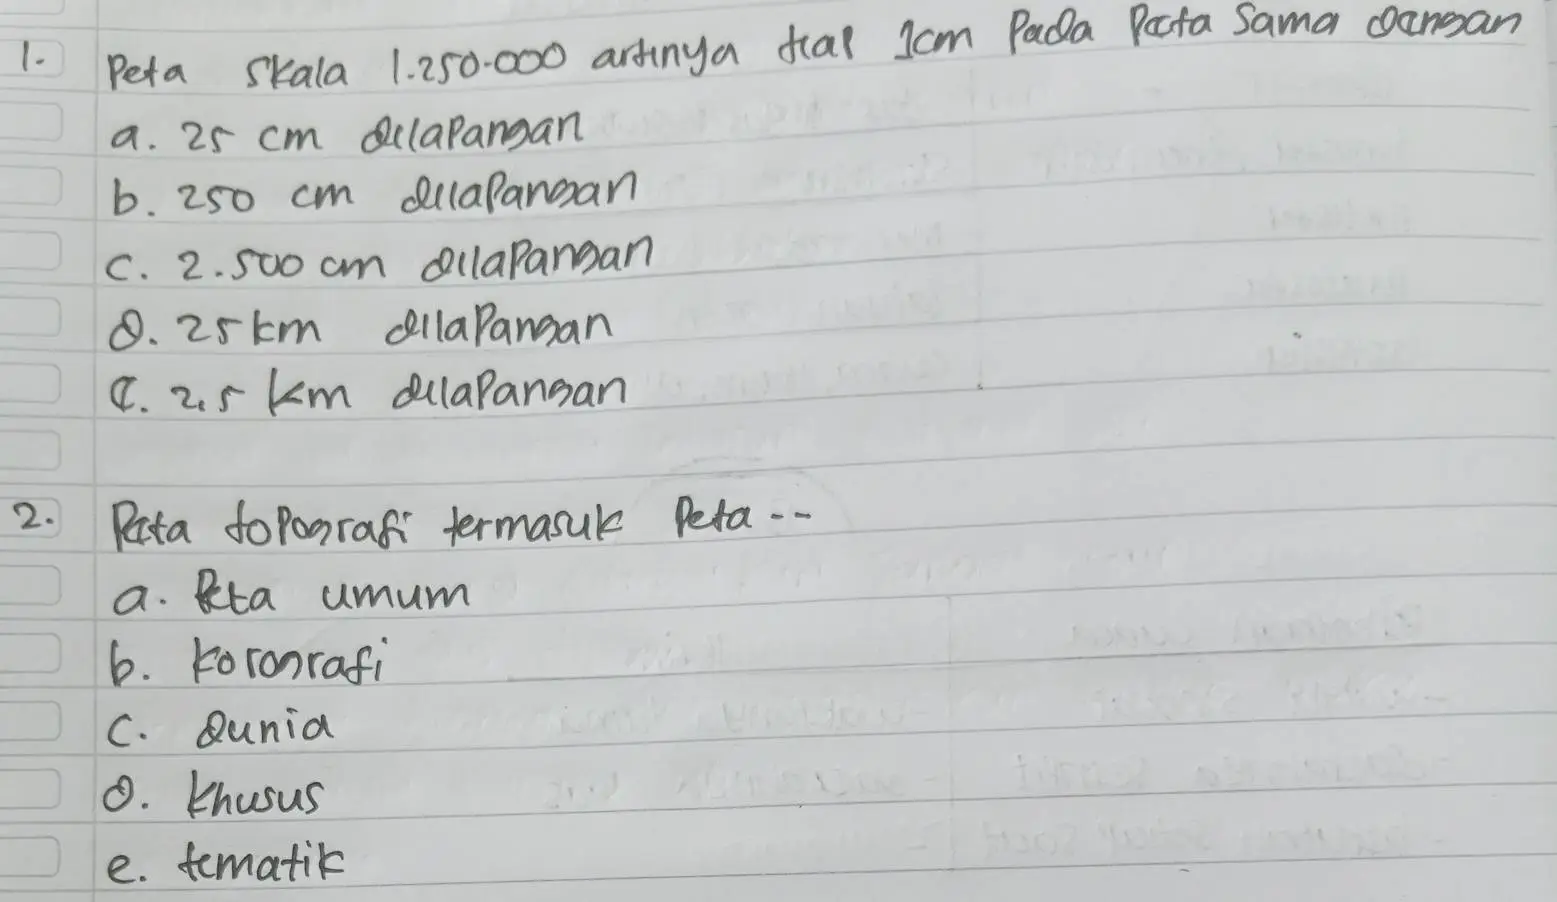 1. Peta skala 1.250.000 artinya tiap 1cm Pada Peta Sama dengan
a. 25 cm dilapangan
b. 250 cm dilapangan
c. 2.500 cm dilapangan
d. 25 km dilapangan
e. 2,5 km dilapangan
2. Peta topografi termasuk Peta ...
a. Peta umum
b. korografi
c. dunia
d. khusus
e. tematik